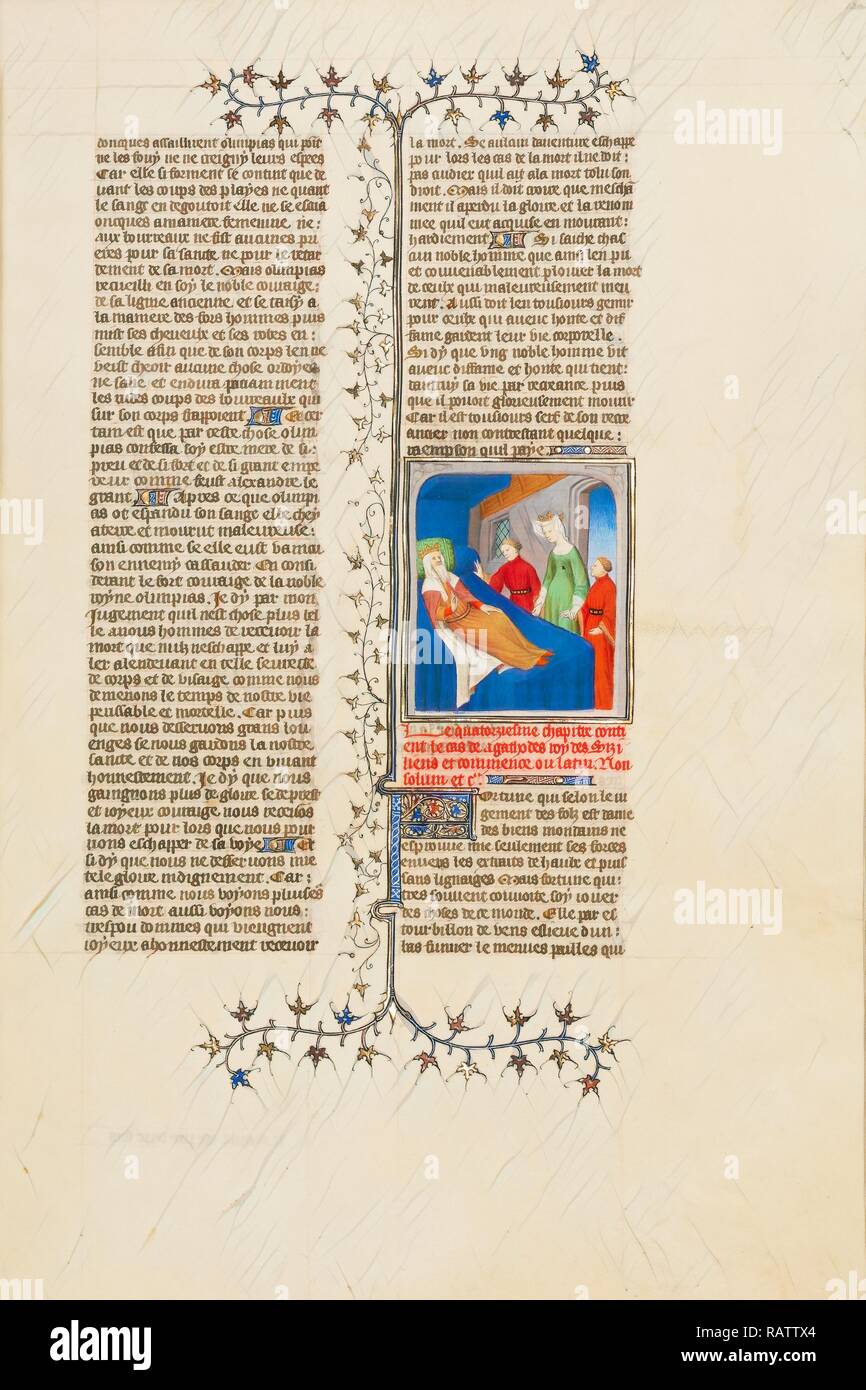 doncques assaillirent olimpias qui point
ne les fouy ne ne creigny leurs espees
Car elle si forment se contint que de
uant les coups des playes ne quant
le sang en degoutoit elle ne se escria
oncques a maniere femenine ne:
aux bourreaux ne fist aucunes pri
eres pour sa sante ne pour le retar
dement de sa mort. Mais olimpias
recueilli en soy le noble couraige:
de sa ligne ancienne et se taisy a
la maniere des fors hommes puis
mist ses cheueulx et ses robes en:
semble afin que de son corps len ne
veist cheoir aucune chose ordoyee
ne sale et endura paciamment
les durs coups des bourreaulx qui
sur son corps frappoient Et cer
tain est que par ceste chose olim
pias confessa soy estre mere de si:
preu et de si fort et de si grant empe
reur comme feust alexandre le
grant Apres ce que olimpi
as ot espandu son sang elle chey
a terre et mourut maleureuse:
ainsi comme se elle eust vaincu
son ennemy cassander En consi
derant le fort couraige de la noble
royne olimpias. Je dy par mon
Jugement quil nest chose plus bel
le a nous hommes de receuoir la
mort que nulz neschappe et luy a
ler alendeuant en telle seurete
de corps et de visaige comme nous
demenons le temps de nostre vie
peussable et mortelle. Car puis
que nous desseruons grans lou
enges se nous gardons la nostre
sancte et de nos corps en viuant
honnestement. Je dy que nous
gaingnons plus de gloire se de prest
et joyeux couraige nous receuons
la mort pour lors que nous pour
rions eschapper de sa voye Et
si dy que nous ne desseruons mie
tele gloire indignement. Car:
ainsi comme nous voyons pluises
cas de mort aussi voyons nous:
trespou dommes qui viengnent
joyeux a honnestement receuoir
la mort. Se aulcun dauenture eschappe
pour lors les cas de la mort il ne doit:
pas cudier quil ait a la mort tolu son
droit. Mais il doit croire que meschā
ment il a perdu la gloire et la renom
mee quil eut acquise en mourant:
hardiement Si saiche chas
cun noble homme que ainsi len puet
et couuenablement plourer la mort
de ceulx qui maleureusement meu
rent. Aussi doit len tousiours gemir
pour ceulx qui auenc honte et dif
fame gardent leur vie corporelle.
Si dy que vng noble homme vit
auenc diffame et honte qui tient:
sa vie par recreance puis
que il pouoit glorieusement mourir
Car il est tousiours serf de son
ancier non contrestant quelque:
raempson quil paye.
Le quatorziesme chapitre conti
ent le cas de agathodes roy des Sizi
liens et commence ou latin. Non
solum et cꝭ
Fortune qui selon le iu
gement des folz est dame
des biens mondains ne
esprouue mie seulement ses forces
enuers les extraits de haulx et puis
sans lignaiges Mais fortune qui:
tres souuent couuoite soy iouer
des choses de ce monde. Elle par es
tourbillon de vens eslieue dun:
bas fumier le menues pailles qui
alamy
Image ID: RATTX4
www.alamy.com